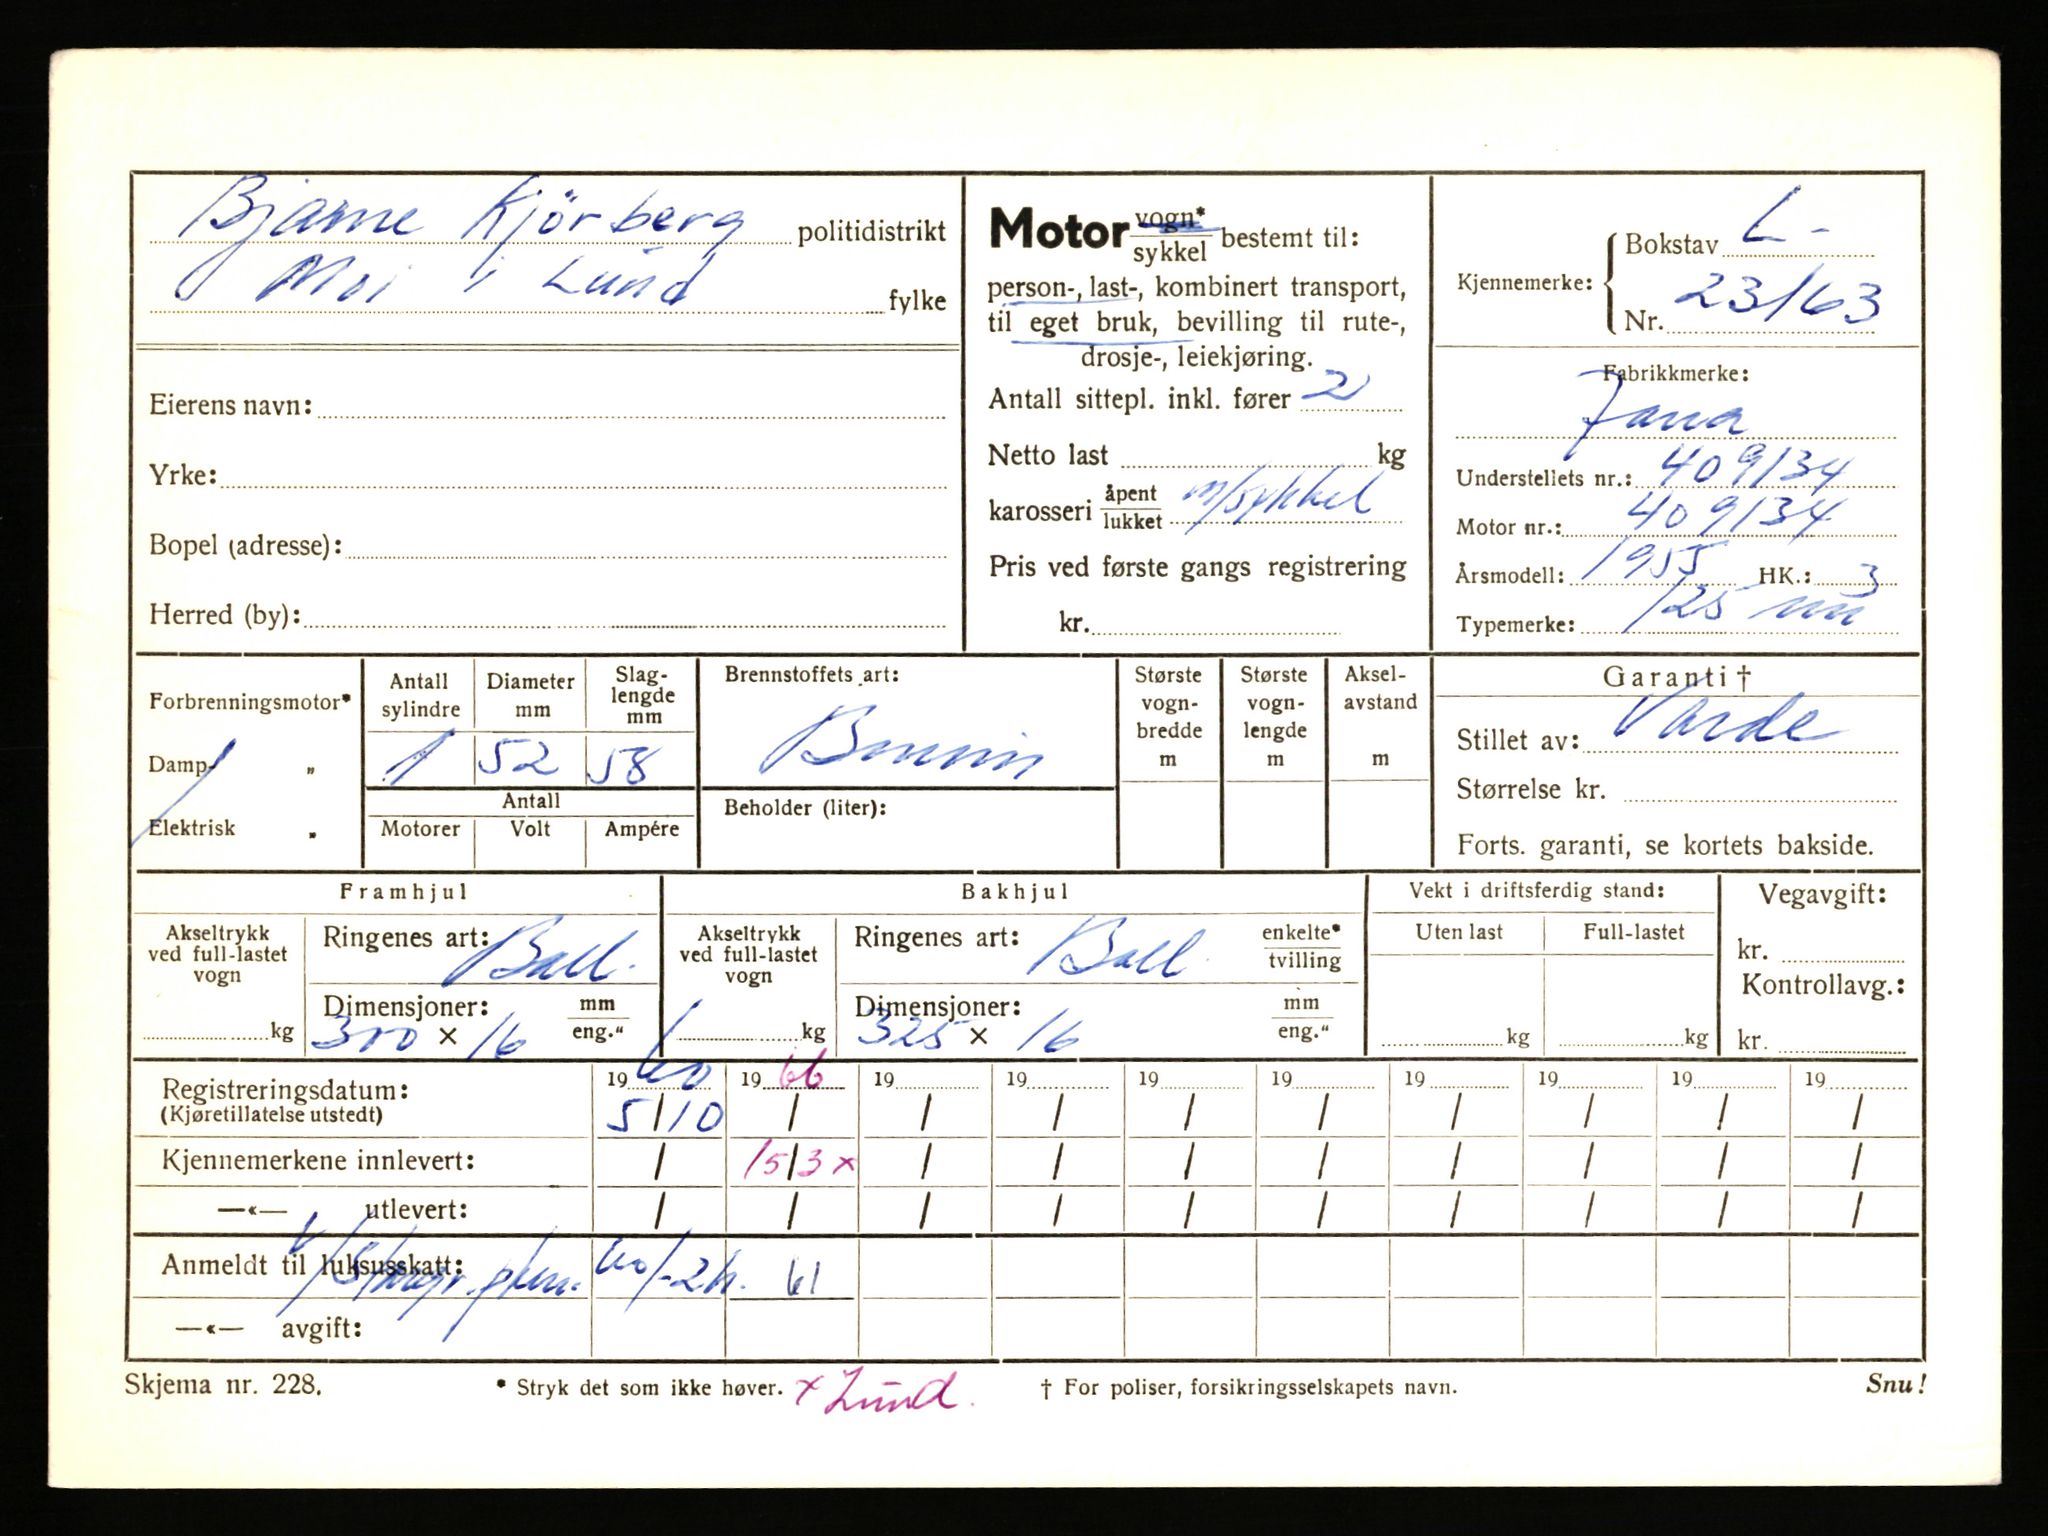 Bjarne Kjörberg politidistrikt
Moi i Lund fylke
Eierens navn:
Yrke:
Bopel (adresse):
Herred (by):
Motor vogn* / sykkel bestemt til:
person-, last-, kombinert transport,
til eget bruk, bevilling til rute-,
drosje-, leiekjøring.
Antall sittepl. inkl. fører 2
Netto last kg
karosseri åpent / lukket m/sykkel
Pris ved første gangs registrering
kr.
Kjennemerke: Bokstav L-
Nr. 23163
Fabrikkmerke:
Understellets nr.: 409134
Motor nr.: 409134
Årsmodell: 1955 HK.: 3
Typemerke: 125
Forbrenningsmotor*
Damp- „
Elektrisk „
Antall sylindre Diameter mm Slag-lengde mm
1 52 58
Antall
Motorer Volt Ampére
Brennstoffets art:
Bensin
Beholder (liter):
Største vogn-bredde m
Største vogn-lengde m
Aksel-avstand m
Garanti †
Stillet av: Varde
Størrelse kr.
Forts. garanti, se kortets bakside.
Framhjul
Akseltrykk ved full-lastet vogn kg
Ringenes art: Ball.
Dimensjoner: mm / eng."
300 × 16
Bakhjul
Akseltrykk ved full-lastet vogn kg
Ringenes art: Ball. enkelte* / tvilling
Dimensjoner: mm / eng."
325 × 16
Vekt i driftsferdig stand:
Uten last Full-lastet
kg kg
Vegavgift:
kr.
Kontrollavg.:
kr.
Registreringsdatum: 19 60 19 66 19 19 19 19 19 19 19 19
(Kjøretillatelse utstedt) 5/10 / / / / / / / / /
Kjennemerkene innlevert: / 15/3 x / / / / / / / /
—«— utlevert: / / / / / / / / / /
Anmeldt til luksusskatt: 60/-2h. 61
—«— avgift:
Skjema nr. 228. * Stryk det som ikke høver. x Lund. † For poliser, forsikringsselskapets navn. Snu!